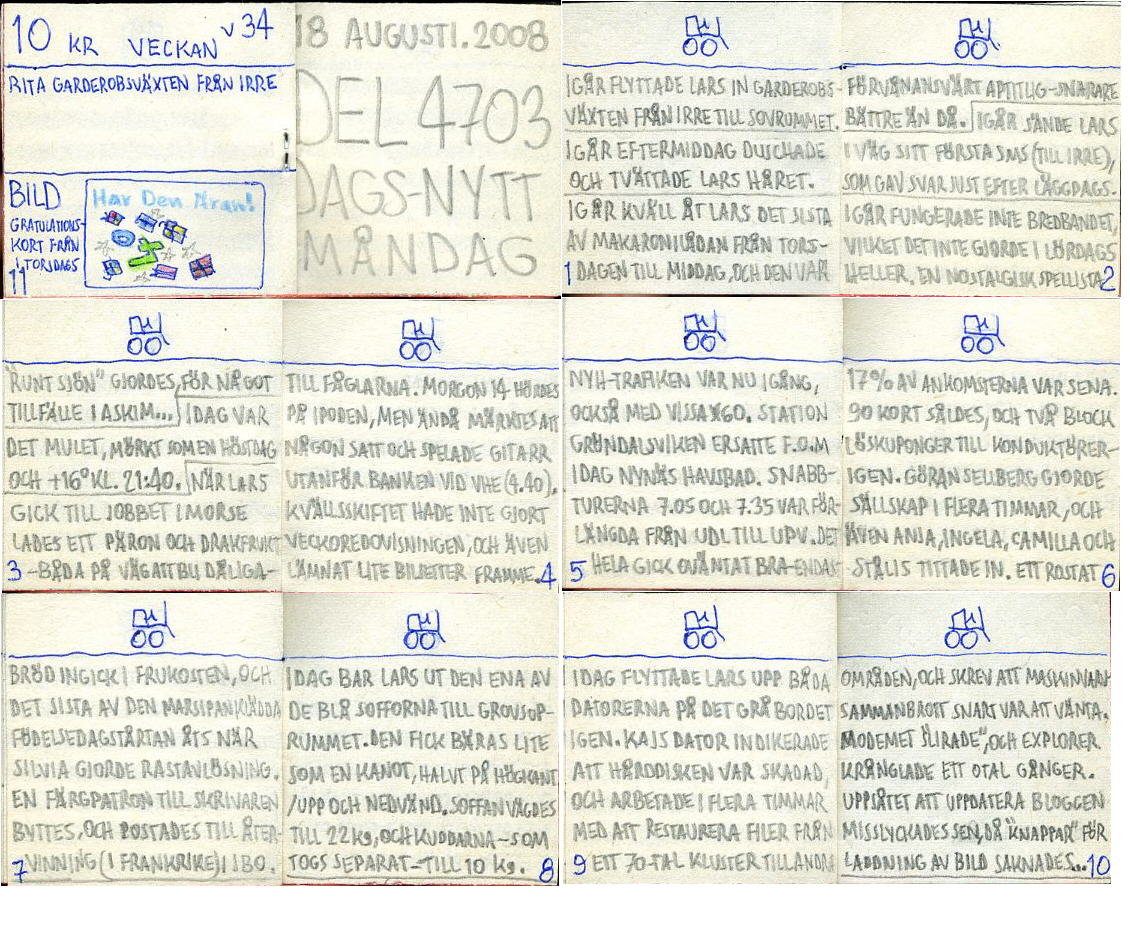 10 KR VECKAN V 34
RITA GARDEROBSVÄXTEN FRÅN IRRE
BILD
GRATULATIONS-
KORT FRÅN
I TORSDAGS
Har Den Äran!
11
18 AUGUSTI. 2008
DEL 4703
DAGS-NYTT
MÅNDAG
IGÅR FLYTTADE LARS IN GARDEROBS-
VÄXTEN FRÅN IRRE TILL SOVRUMMET.
IGÅR EFTERMIDDAG DUSCHADE
OCH TVÄTTADE LARS HÅRET.
IGÅR KVÄLL ÅT LARS DET SISTA
AV MAKARONILÅDAN FRÅN TORS-
1 DAGEN TILL MIDDAG, OCH DEN VAR
FÖRVÅNANSVÄRT APTITLIG-SNARARE
BÄTTRE ÄN DÅ. IGÅR SÄNDE LARS
IVÄG SITT FÖRSTA SMS (TILL IRRE),
SOM GAV SVAR JUST EFTER LÄGGDAGS.
IGÅR FUNGERADE INTE BREDBANDET,
VILKET DET INTE GJORDE I LÖRDAGS
HELLER. EN NOSTALGISK SPELLISTA 2
"RUNT SJÖN" GJORDES, FÖR NÅGOT
TILLFÄLLE I ASKIM... IDAG VAR
DET MULET, MÖRKT SOM EN HÖSTDAG
OCH +16° KL. 21:40. NÄR LARS
GICK TILL JOBBET I MORSE
LADES ETT PÄRON OCH DRAKFRUKT
3 -BÅDA PÅ VÄG ATT BLI DÅLIGA-
TILL FÅGLARNA. MORGON 14 HÖRDES
PÅ IPODEN, MEN ÄNDÅ MÄRKTES ATT
NÅGON SATT OCH SPELADE GITARR
UTANFÖR BANKEN VID VHE (4.40).
KVÄLLSSKIFTET HADE INTE GJORT
VECKOREDOVISNINGEN, OCH ÄVEN
LÄMNAT LITE BILJETTER FRAMME. 4
NYH-TRAFIKEN VAR NU IGÅNG,
OCKSÅ MED VISSA X60. STATION
GRÖNDALSVIKEN ERSATTE F.O.M
IDAG NYNÄS HAVSBAD. SNABB-
TURERNA 7.05 OCH 7.35 VAR FÖR-
LÄNGDA FRÅN UDL TILL UPV. DET
5 HELA GICK OVÄNTAT BRA-ENDAST
17% AV ANKOMSTERNA VAR SENA.
90 KORT SÅLDES, OCH TVÅ BLOCK
LÖSKUPONGER TILL KONDUKTÖRER-
IGEN. GÖRAN SELLBERG GJORDE
SÄLLSKAP I FLERA TIMMAR, OCH
ÄVEN ANJA, INGELA, CAMILLA OCH
STÅLIS TITTADE IN. ETT ROSTAT 6
BRÖD INGICK I FRUKOSTEN, OCH
DET SISTA AV DEN MARSIPANKLÄDDA
FÖDELSEDAGSTÅRTAN ÅTS NÄR
SILVIA GJORDE RASTAVLÖSNING.
EN FÄRGPATRON TILL SKRIVAREN
BYTTES, OCH POSTADES TILL ÅTER-
7 VINNING (I FRANKRIKE) I BO.
IDAG BAR LARS UT DEN ENA AV
DE BLÅ SOFFORNA TILL GROVSOP-
RUMMET. DEN FICK BÄRAS LITE
SOM EN KANOT, HALVT PÅ HÖGKANT
/UPP OCH NEDVÄND. SOFFAN VÄGDES
TILL 22 kg, OCH KUDDARNA-SOM
TOGS SEPARAT-TILL 10 kg. 8
IDAG FLYTTADE LARS UPP BÅDA
DATORERNA PÅ DET GRÅ BORDET
IGEN. KAJS DATOR INDIKERADE
ATT HÅRDDISKEN VAR SKADAD,
OCH ARBETADE I FLERA TIMMAR
MED ATT RESTAURERA FILER FRÅN
9 ETT 70-TAL KLUSTER TILL ANDRA
OMRÅDEN, OCH SKREV ATT MASKINVARU-
SAMMANBROTT SNART VAR ATT VÄNTA.
MODEMET "SLIRADE", OCH EXPLORER
KRÅNGLADE ETT OTAL GÅNGER.
UPPSÅTET ATT UPPDATERA BLOGGEN
MISSLYCKADES SEN, DÅ "KNAPPAR" FÖR
LADDNING AV BILD SAKNADES... 10